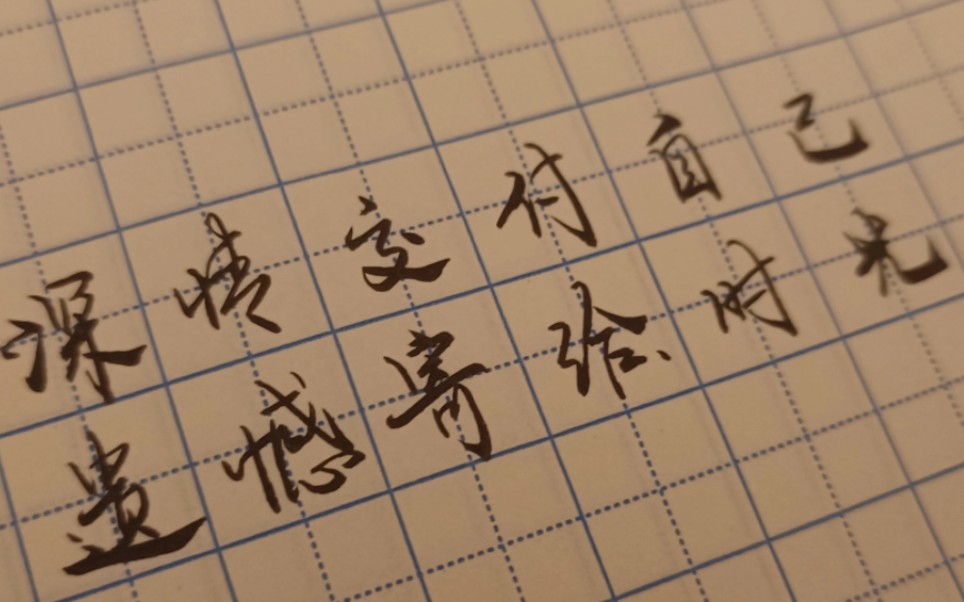 深情交付自己
遗憾寄给时光